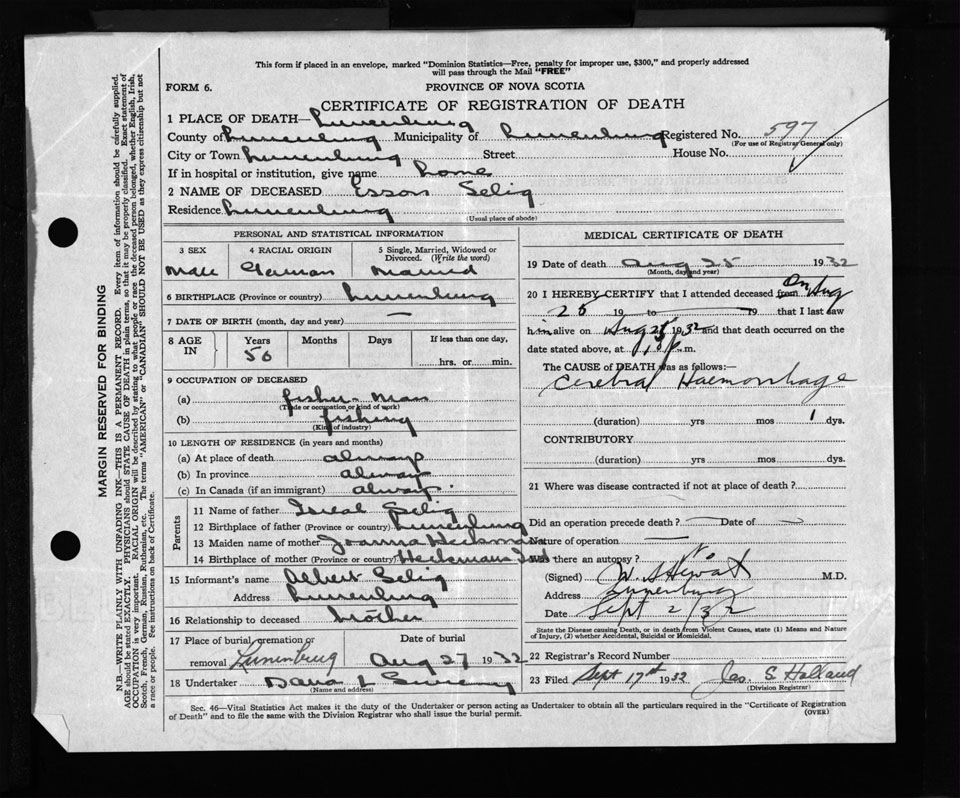 This form if placed in an envelope, marked "Dominion Statistics—Free, penalty for improper use, $300," and properly addressed
will pass through the Mail "FREE"
FORM 6.
PROVINCE OF NOVA SCOTIA
CERTIFICATE OF REGISTRATION OF DEATH
1 PLACE OF DEATH— Lunenburg
County of Lunenburg Municipality of Lunenburg Registered No. 597
(For use of Registrar General only)
City or Town Lunenburg Street House No.
If in hospital or institution, give name home
2 NAME OF DECEASED Esson Selig
Residence Lunenburg
(Usual place of abode)
PERSONAL AND STATISTICAL INFORMATION
3 SEX 4 RACIAL ORIGIN 5 Single, Married, Widowed or
Divorced. (Write the word)
Male German Married
6 BIRTHPLACE (Province or country) Lunenburg
7 DATE OF BIRTH (month, day and year) —
8 AGE IN Years Months Days If less than one day,
50 hrs. or min.
9 OCCUPATION OF DECEASED
(a) fisher-man
(Trade or occupation or kind of work)
(b) fishing
(Kind of industry)
10 LENGTH OF RESIDENCE (in years and months)
(a) At place of death always
(b) In province always
(c) In Canada (if an immigrant) always
Parents
11 Name of father Iseal Selig
12 Birthplace of father (Province or country) Lunenburg
13 Maiden name of mother Joanna Heckman
14 Birthplace of mother (Province or country) Heckmans Isd
15 Informant's name Albert Selig
Address Lunenburg
16 Relationship to deceased brother
17 Place of burial, cremation or Date of burial
removal Lunenburg Aug 27 1932
18 Undertaker Dana L Sweeny
(Name and address)
MEDICAL CERTIFICATE OF DEATH
19 Date of death Aug 25 1932
(Month, day and year)
20 I HEREBY CERTIFY that I attended deceased from On Aug
25 19 to 19 that I last saw
him alive on Aug 25 1932 and that death occurred on
date stated above, at p.m.
The CAUSE of DEATH was as follows:—
Cerebral Haemorrhage
(duration) yrs mos 1 dys.
CONTRIBUTORY
(duration) yrs mos dys.
21 Where was disease contracted if not at place of death?
Did an operation precede death? — Date of —
Nature of operation —
Was there an autopsy? No
(Signed) W. Stewart M.D.
Address Lunenburg
Date Sept 2/32
State the Disease causing Death, or in death from Violent Causes, state (1) Means and Nature
of Injury, (2) whether Accidental, Suicidal or Homicidal.
22 Registrar's Record Number
23 Filed Sept 17th 1932 Jas S Holland
(Division Registrar)
Sec. 46—Vital Statistics Act makes it the duty of the Undertaker or person acting as Undertaker to obtain all the particulars required in the "Certificate of Registration
of Death" and to file the same with the Division Registrar who shall issue the burial permit.
(OVER)
MARGIN RESERVED FOR BINDING
N.B.—WRITE PLAINLY WITH UNFADING INK—THIS IS A PERMANENT RECORD. Every item of information should be carefully supplied.
AGE should be stated EXACTLY. PHYSICIANS should STATE CAUSE OF DEATH in plain terms, so that it may be properly classified. Exact statement of
OCCUPATION is very important. RACIAL ORIGIN will be described by stating to what people or race the deceased person belonged, whether English, Irish,
Scotch, French, German, Russian, Ruthenian, etc. The terms "AMERICAN" or "CANADIAN" SHOULD NOT BE USED as they express citizenship but not
a race or people. See instructions on back of Certificate.